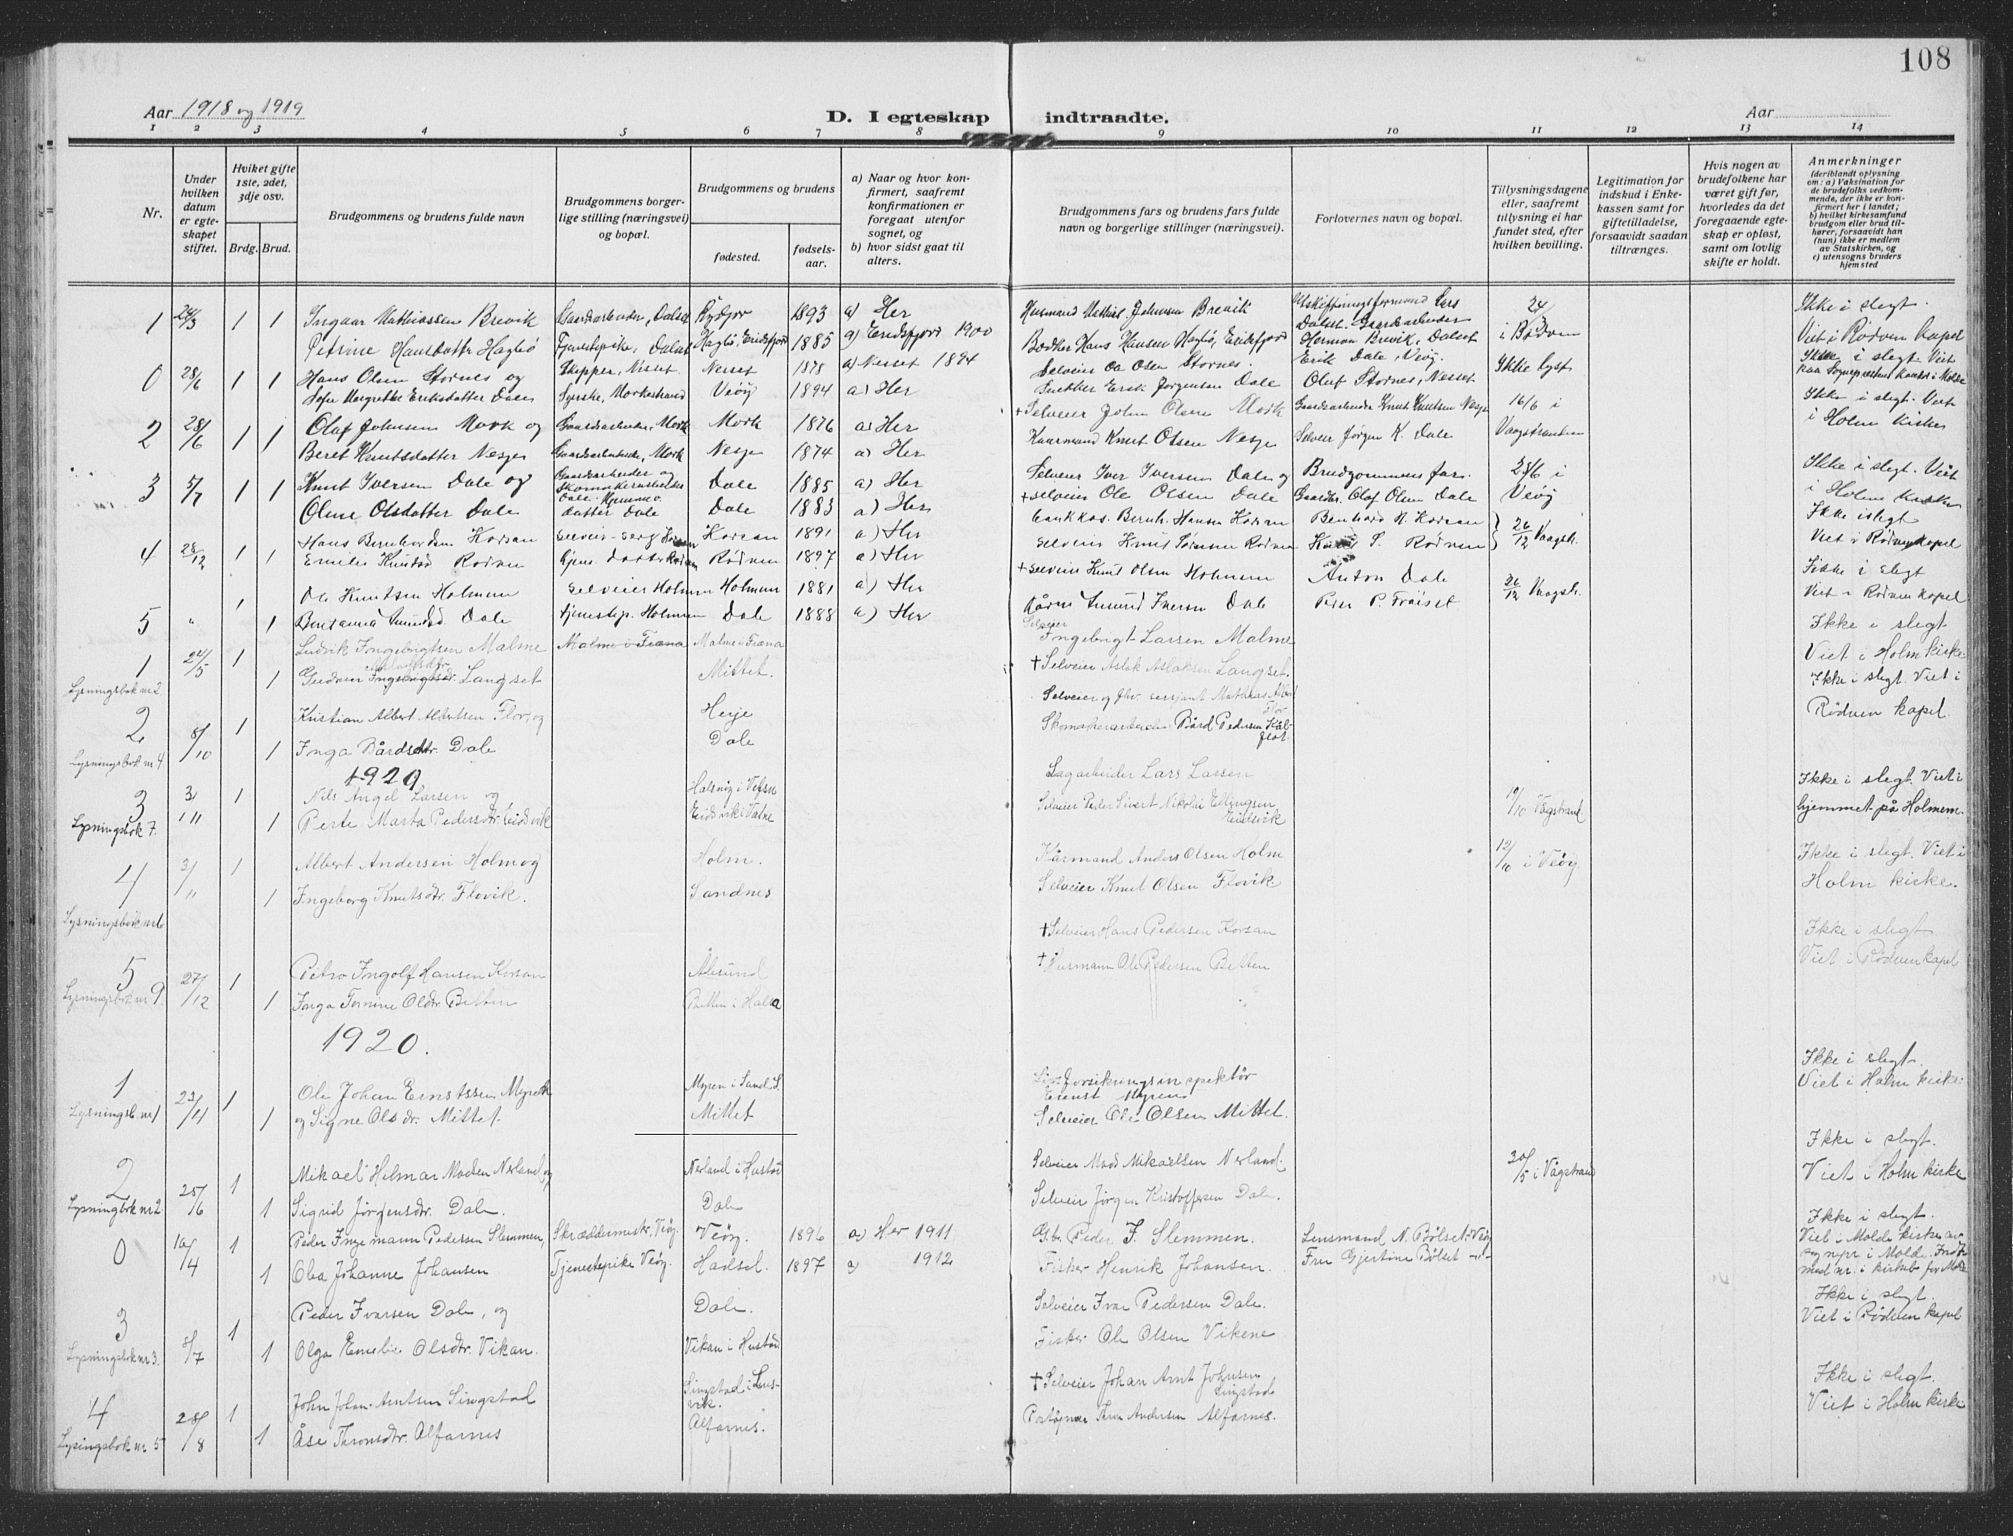 108
Aar 1918 og 1919
D. I egteskap indtraadte.
Aar
1 2 3 4 5 6 7 8 9 10 11 12 13 14
Nr.
Under hvilken datum er egteskapet stiftet.
Hviket gifte 1ste, 2det, 3dje osv.
Brdg. Brud.
Brudgommens og brudens fulde navn
Brudgommens borgerlige stilling (næringsvei) og bopæl.
Brudgommens og brudens
fødested.
fødselsaar.
a) Naar og hvor konfirmert, saafremt konfirmationen er foregaat utenfor sognet, og
b) hvor sidst gaat til alters.
Brudgommens fars og brudens fars fulde navn og borgerlige stillinger (næringsvei).
Forlovernes navn og bopæl.
Tillysningsdagene eller, saafremt tillysning ei har fundet sted, efter hvilken bevilling.
Legitimation for indskud i Enkekassen samt for giftetilladelse, forsaavidt saadan tiltrænges.
Hvis nogen av brudefolkene har været gift før, hvorledes da det foregaaende egteskap er opløst, samt om lovlig skifte er holdt.
Anmerkninger
(deriblandt oplysning om: a) Vaksination for de brudefolks vedkommende, der ikke er konfirmert her i landet; b) hvilket kirkesamfund brudgom eller brud tilhører, forsaavidt han (hun) ikke er medlem av Statskirken, og c) utensogns bruders hjemsted
1 24/3 1 1 Ingvar Mathiassen Brevik Gaardsarbeider, Dalset 1893 a) Her Husmand Mathias Johnsen Brevik Utskiftningsformand Lars Dalset. Gaardsarbeider 24/3 Ikke i slegt.
Petrine Hansdatter Hagbø Tjenestepike, Dalset Hagbø, Eridsfjord 1885 a) Eridsfjord 1900 Bødker Hans Hansen Hagbø, Eridsfjord Herman Brevik, Dalset i Rødven Viet i Rødven kapel
0 28/6 1 1 Hans Olsen Stornes og Skipper, Nesset Nesset 1878 a) Nesset 1894 Selveier Ole Olsen Stornes. Erik Dale, Veøy. Ikke lyst Ikke i slegt Viet
Sofie Margrethe Eriksdatter Dale Veøy 1894 a) Her Snekker Erik Jørgensen Dale Oluf Stornes, Nesset paa Sogneprestens kontor i Molde
2 28/6 1 1 Olaf Johnsen Mork og Gaardsarbeider, Mork Mork 1876 a) Her + Selveier John Olsen Mork Gaardsarbeider Knut Knutsen Nesje 16/6 i Ikke i slegt. Viet
Beret Knutsdatter Nesje Gaardsarbeider, Mork Nesje 1874 a) Her Kaarmand Knut Olsen Nesje Selveier Jørgen K. Dale Vaagstranden i Holm kirke
3 5/7 1 1 Knut Iversen Dale og Gaardsarbeider og Skomakerarbeider Dale. Dale 1885 a) Her Selveier Iver Iversen Dale og Brudgommens far. 23/6 i Ikke i slegt. Viet
Oline Olsdatter Dale Hjemmev. datter Dale Dale 1883 a) Her + selveier Ole Olsen Dale Gaardbr. Olaf Olsen Dale Veøy i Holm kirke
4 28/12 1 1 Hans Bernhardsen Korsan Korsan 1891 a) Her Bankkas. Bernh. Hansen Korsan Benhard H. Korsan 26/12 Vaagstr. Ikke i slegt
Emelie Knutsd Rødven Hjem. datter Rødven Rødven 1897 a) Her Selveier Knut Rødven Knut S. Rødven Viet i Rødven kapel
5 " 1 Ole Knutsen Holmem selveier Holmem Holmem 1881 a) Her + selveier Knut Olsen Holmem Anton Dale 26/12 Vaagstr. Ikke i slegt
1 Berntanna Amundsd Dale tjenestep. Holmem Dale 1888 a) Her Amund Iversen Dale Peder P. Frøiset Viet i Rødven kapel
1 24/5 1 Ludvik Ingebrigtsen Malme Malme i Fræna Malme i Fræna Selveier Ingebrigt Larsen Malme Ikke i slegt
Lysningsbok nr 2 1 Gudrun Ingebrigtsd. Aslaksdtr Langset Mittet + Selveier Aslak Aslaksen Langset. Viet i Holm kirke
2 8/10 1 Kristian Albert Albertsen Flor, og Herje Selveier og fhv. sersjant Mathias Albert Flor Ikke i slegt. Viet i
Lysningsbok nr 4 1 Inga Bårdsdtr. Dale Dale Skomakerarbeider Bård Pedersen Kålflot Rødven kapel
1920
3 3/11 1 Nils Angel Larsen og Halsøy i Vefsn Sagarbeider Lars Larsen 19/10 Vågstrand Ikke i slegt. Viet i
Lysningsbok 7. 1 Perte Marta Pedersdtr. Eidsvik Eidsvik i Vatne Selveier Peder Sivert Nikolai Ellingsen Eidsvik hjemmet på Holmem.
4 3/11 1 Albert Andersen Holm og Holm. Kårmand Anders Olsen Holm 12/10 i Veøy Ikke i slegt. Viet i
Lysningsbok nr 6 1 Ingeborg Knutsdtr. Flovik. Sandnes Selveier Knut Olsen Flovik Holm kirke.
5 27/12 1 Petro Ingolf Hansen Korsan Ålesund + Selveier Hans Pedersen Korsan Ikke i slegt
Lysningsbok nr 9. 1 Inga Tomine Olsdtr. Betten Betten i Halsa + Husmann Ole Pedersen Betten Viet i Rødven kapel
1920.
1 23/4 1 Ole Johan Ernstssen Myren Myren i Sand.S. Livsforsikringsinspektør Ernst Myren Ikke i slegt.
Lysningsb. nr 1 1 og Signe Olsdr. Mittet. Mittet Selveier Ole Olsen Mittet. Viet i Holm kirke.
2 25/6 1 Mikael Helmar Madsen Nerland, og Nerland i Hustad Selveier Mads Mikaelsen Nerland. 30/5 i Vågstrand Ikke i slegt.
Lysningbok nr 2 1 Sigrid Jørgensdr. Dale. Dale Selveier Jørgen Kristoffersen Dale. Viet i Holm kirke
0 16/4 1 Peder Ingemann Pedersen Slemmen, Skræddermestr, Veøy Veøy. 1896 a) Her 1911 Gbr. Peder J. Slemmen. Lensmand N. Bølset, Veøy Ikke i slegt.
1 Olea Johanne Johansen Tjenestepike Veøy. Hadsel. 1897 a) 1912 Fisker Henrik Johansen. Fru Gjertine Bølset Viet i Molde kirke av sognepr i Molde. Indf. med nr. i kirkeb for Molde
3 8/7 1 Peder Ivarsen Dale, og Dale. Selveier Ivar Pedersen Dale. Ikke i slegt.
Lysningsbok nr 3. 1 Olga Emelie Olsdtr. Vikan. Vikan i Hustad. Fisker Ole Olsen Vikene Viet i Rødven kapel
4 28/8 1 John Johan Arntsen Singstad Singstad i Lensvik. + Selveier Johan Arnt Johnsen Singstad Ikke i slegt.
Lysingsbok nr. 5 1 Åse Tronsdtr. Alfarnes Alfarnes. Tron Andersen Alfarnes. Viet i Holm kirke